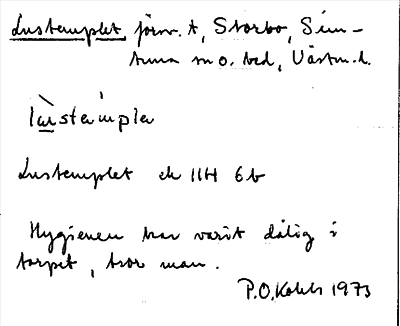 Lustemplet, förv. t, Storbo, Sim-
tuna sn o. hd, Västm. l.
Lustemplet ek 11H 6b
Hygienen har varit dålig i
torpet, tror man.
P.O. 1973